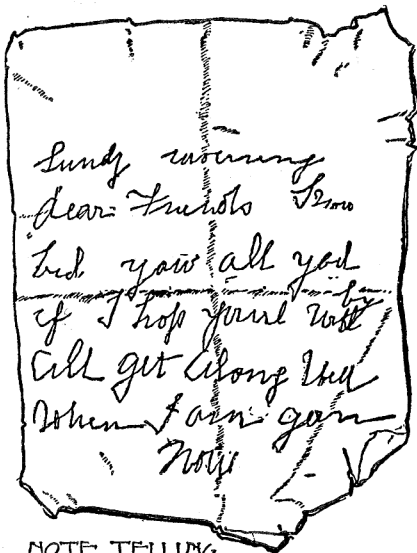 Sundy morning
dear Friends I now
bid you all god
by
if I hop youl will
all get along well
When I am gon
NOTE TELLING